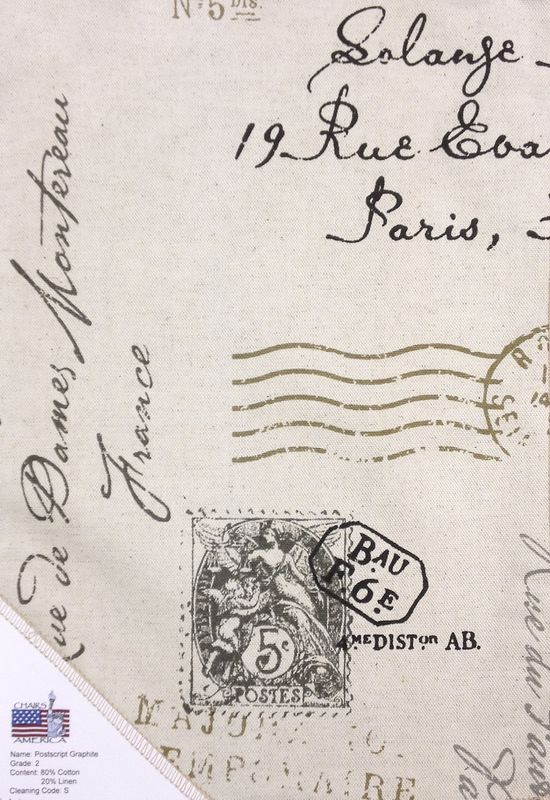 Nº 5 DIS.
Solange
19 Rue Eva
Paris,
Rue de Dames Montereau
France
R
14
SES
BAU
F. 6E
5c
POSTES
4MEDISTon AB.
Rue du
MAJOR
EMPORAIRE
CHAIRS
AMERICA
Name: Postscript Graphite
Grade: 2
Content: 80% Cotton
20% Linen
Cleaning Code: S